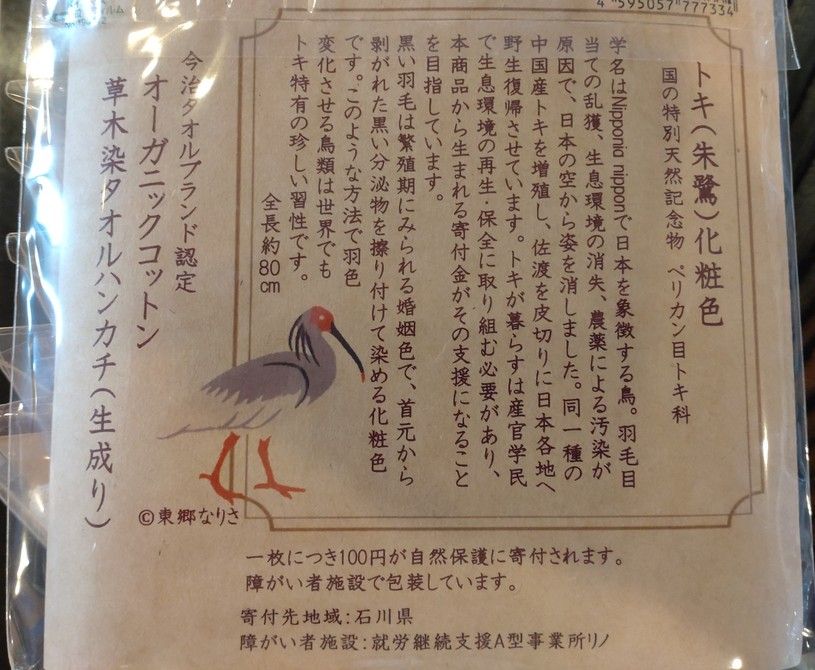 4 595057 777334
トキ(朱鷺)化粧色
国の特別天然記念物 ペリカン目トキ科
学名はNipponia nipponで日本を象徴する鳥。羽毛目
当ての乱獲、生息環境の消失、農薬による汚染が
原因で、日本の空から姿を消しました。同一種の
中国産トキを増殖し、佐渡を皮切りに日本各地へ
野生復帰させています。トキが暮らすは産官学民
で生息環境の再生・保全に取り組む必要があり、
本商品から生まれる寄付金がその支援になること
を目指しています。
黒い羽毛は繁殖期にみられる婚姻色で、首元から
剥がれた黒い分泌物を擦り付けて染める化粧色
です。このような方法で羽色
変化させる鳥類は世界でも
トキ特有の珍しい習性です。
全長約80cm
今治タオルブランド認定
オーガニックコットン
草木染タオルハンカチ(生成り)
©東郷なりさ
一枚につき100円が自然保護に寄付されます。
障がい者施設で包装しています。
寄付先地域:石川県
障がい者施設:就労継続支援A型事業所リノ